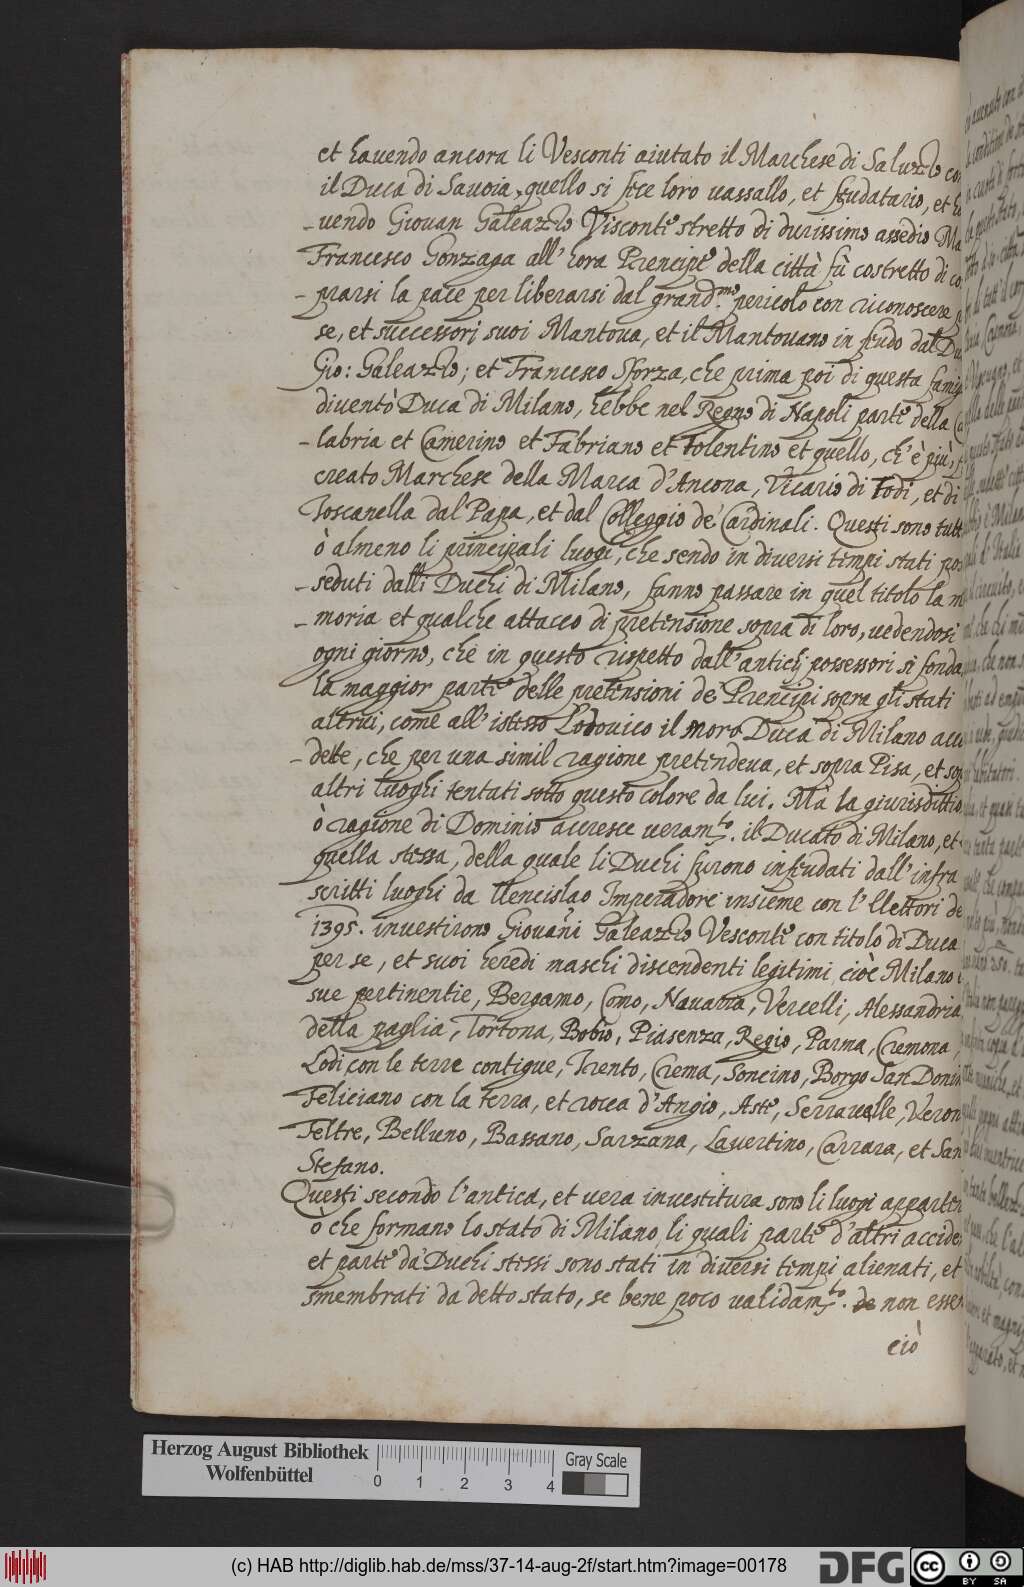 et havendo ancora li Vesconti aiutato il Marchese di Saluzzo co
il Duca di Savoia, quello si fece loro vassallo, et feudatario, et h
-vendo Giovan Galeazzo Visconte stretto di durissimo assedio Ma
Francesco Gonzaga all'hora Prencipe della città fù costretto di co
-prarsi la pace per liberarsi dal grand.mo pericolo con riconoscere p
se, et successori suoi Mantova, et il Mantovano in feudo dal Du
Gio: Galeazzo; et Francesco Sforza, che prima poi di questa famig
diventò Duca di Milano, hebbe nel Regno di Napoli parte della Ca
-labria et Camerino et Fabriano et Tolentino et quello, ch'è più,
creato Marchese della Marca d'Ancona, Vicario di Todi, et di
Toscanella dal Papa, et dal Colleggio dè Cardinali. Questi sono tutt
ò almeno li principali luogi, che sendo in diversi tempi stati pos
-seduti dalli Duchi di Milano, fanno passare in quel titolo la m
-moria et qualche attacco di pretensione sopra di loro, vedendosi
ogni giorno, chè in questo rispetto dall'antichi possessori si fonda
la maggior parte delle pretensioni dè Prencipi sopra gli stati
altrui, come all'istesso Lodovico il moro Duca di Milano acca
-dette, che per una simil ragione pretendeva, et sopra Pisa, et sop
altri luoghi tentati sotto questo colore da lui. Mà la giurisdittio
ò ragione di Dominio accresce veram.te il Ducato di Milano, et
quella stessa, della quale li Duchi furono infeudati dall'infra
scritti luoghi da Venceislao Imperadore insieme con l'Elettori de
1395. investirono Giovanni Galeazzo Vesconte con titolo di Duca
per se, et suoi heredi maschi discendenti legitimi, cioè Milano
sue pertinentie, Bergamo, Como, Navarra, Vercelli, Alessandria
della paglia, Tortona, Bobio, Piasenza, Regio, Parma, Cremona,
Lodi con le terre contigue, Trento, Crema, Soncino, Borgo San Donin
Feliciano con la terra, et rocca d'Angio, Aste, Serravalle, Veron
Feltre, Belluno, Bassano, Sarzana, Lavertino, Carrara, et San
Stefano.
Questi secondo l'antica, et vera investitura sono li luogi apparten
ò che formano lo stato di Milano, li quali parte d'altri accide
et parte dà Duchi stessi sono stati in diversi tempi alienati, et
smembrati da detto stato, se bene poco validam.te de non esse
ciò
Herzog August Bibliothek
Wolfenbüttel
0 1 2 3 4
Gray Scale
(c) HAB http://diglib.hab.de/mss/37-14-aug-2f/start.htm?image=00178
DFG
cc
BY SA